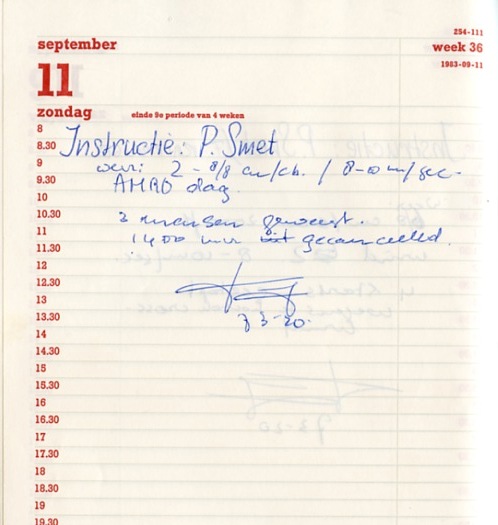 254-111
september
week 36
11
1983-09-11
zondag
einde 9e periode van 4 weken
8
8.30
Instructie: P. Smet
9
2 - 8/8 cu/cb. / 8-10 m/sec.
9.30
AMRO dag.
10
10.30
3 mensen geweest.
11
1400 uur gecancelled.
11.30
12
12.30
13
73-20.
13.30
14
14.30
15
15.30
16
16.30
17
17.30
18
18.30
19
19.30